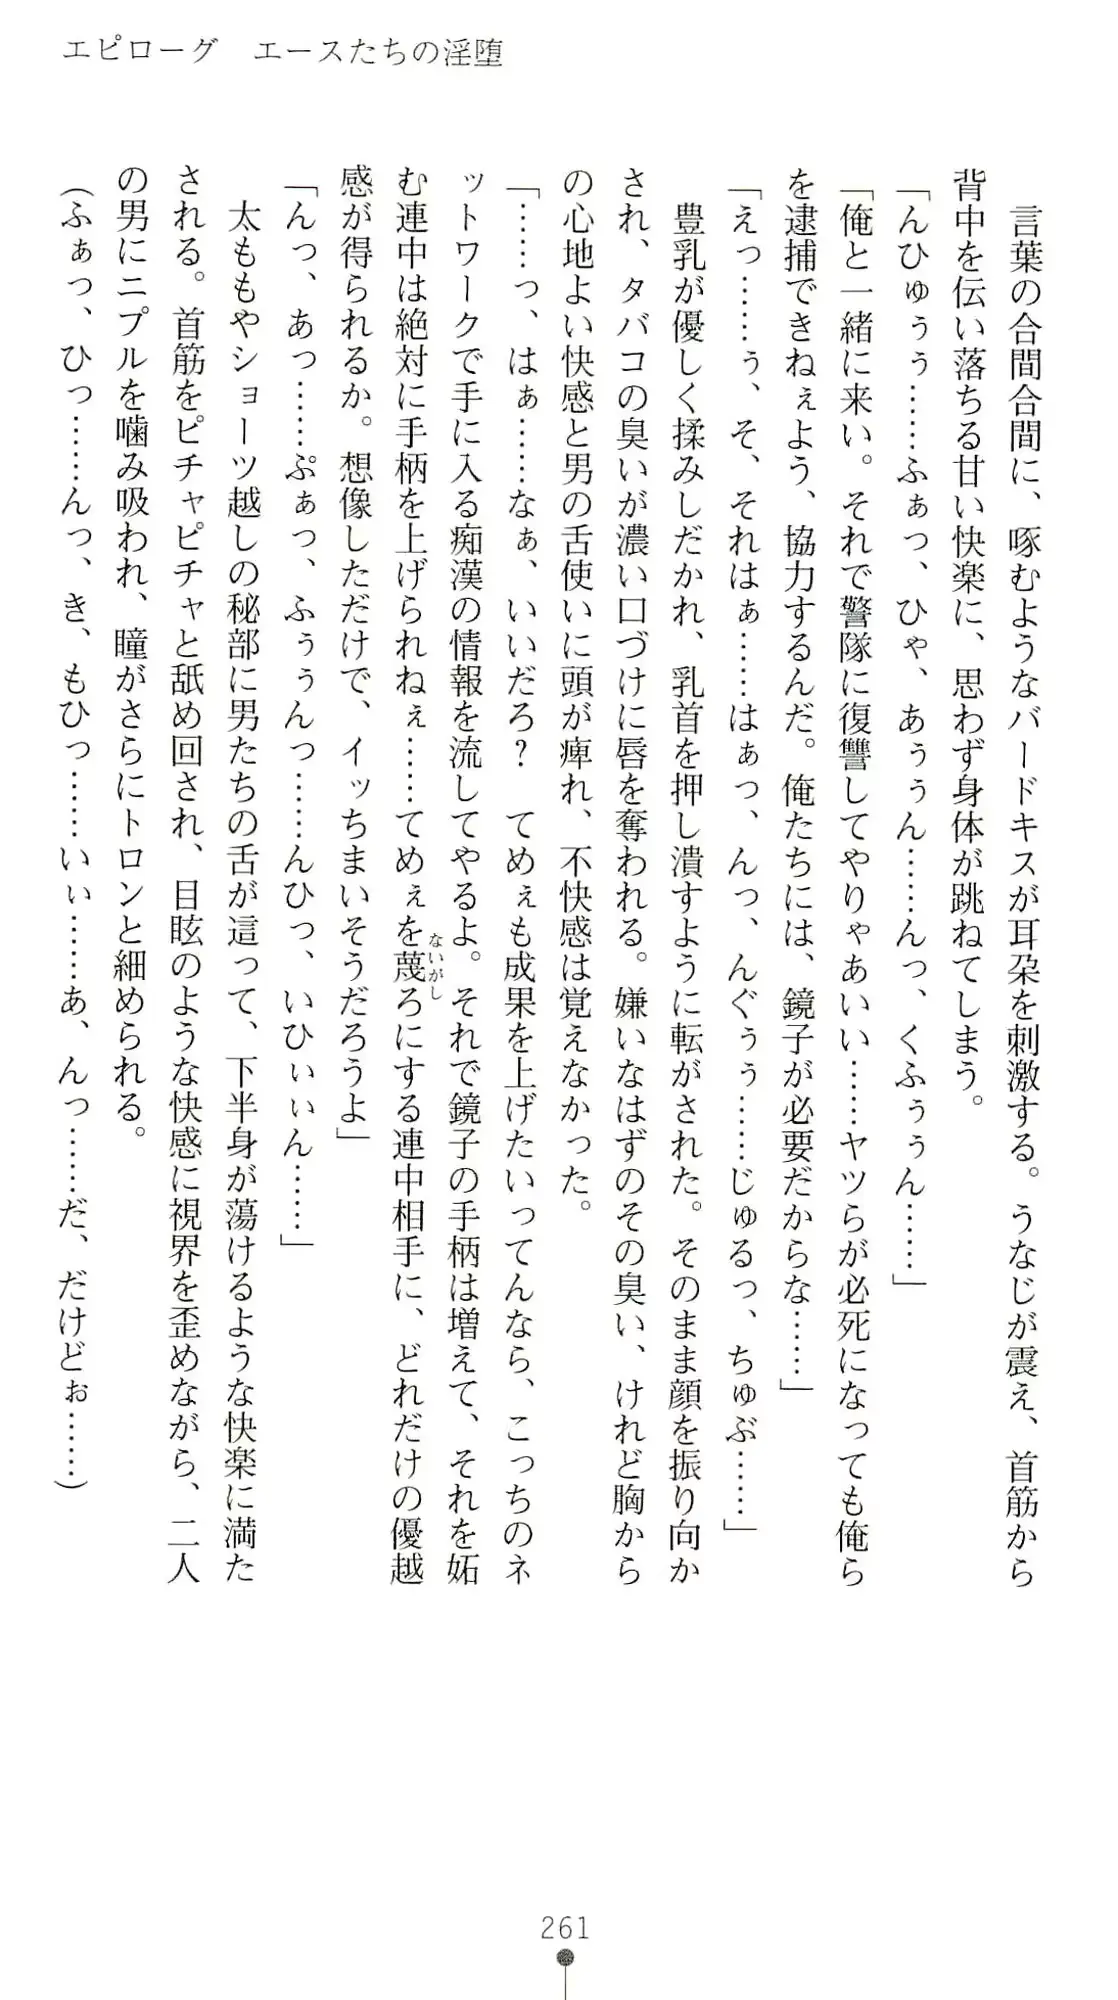 エピローグ　エースたちの淫堕
　言葉の合間合間に、啄むようなバードキスが耳朶を刺激する。うなじが震え、首筋から
背中を伝い落ちる甘い快楽に、思わず身体が跳ねてしまう。
「んひゅぅぅ……ふぁっ、ひゃ、あぅぅん……んっ、くふぅぅん……」
「俺と一緒に来い。それで警隊に復讐してやりゃあいい……ヤツらが必死になっても俺ら
を逮捕できねぇよう、協力するんだ。俺たちには、鏡子が必要だからな……」
「えっ……ぅ、そ、それはぁ……はぁっ、んっ、んぐぅぅ……じゅるっ、ちゅぶ……」
　豊乳が優しく揉みしだかれ、乳首を押し潰すように転がされた。そのまま顔を振り向か
され、タバコの臭いが濃い口づけに唇を奪われる。嫌いなはずのその臭い、けれど胸から
の心地よい快感と男の舌使いに頭が痺れ、不快感は覚えなかった。
「……っ、はぁ……なぁ、いいだろ？　てめぇも成果を上げたいってんなら、こっちのネ
ットワークで手に入る痴漢の情報を流してやるよ。それで鏡子の手柄は増えて、それを妬
む連中は絶対に手柄を上げられねぇ……てめぇを蔑ろにする連中相手に、どれだけの優越
ないがし
感が得られるか。想像しただけで、イッちまいそうだろうよ」
「んっ、あっ……ぷぁっ、ふぅぅんっ……んひっ、いひぃぃん……」
　太ももやショーツ越しの秘部に男たちの舌が這って、下半身が蕩けるような快楽に満た
される。首筋をピチャピチャと舐め回され、目眩のような快感に視界を歪めながら、二人
の男にニプルを噛み吸われ、瞳がさらにトロンと細められる。
（ふぁっ、ひっ……んっ、き、もひっ……いぃ……あ、んっ……だ、だけどぉ……）
261